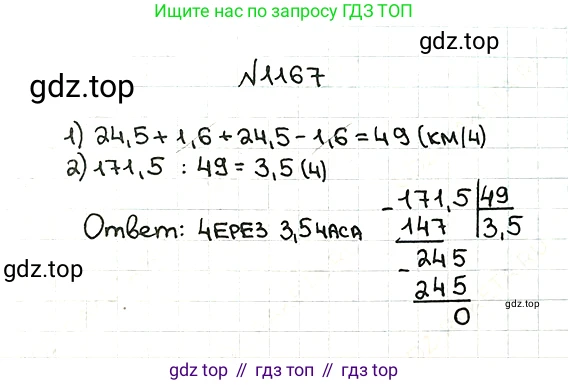 Ищите нас по запросу ГДЗ ТОП
gdz.top
gdz.top
№1167
1) 24,5 + 1,6 + 24,5 - 1,6 = 49 (км/ч)
2) 171,5 : 49 = 3,5 (ч)
Ответ: ЧЕРЕЗ 3,5 ЧАСА
- 171,5 | 49
147 | 3,5
- 245
245
0
gdz.top
gdz.top
gdz.top
Управляй временем // гдз топ // гдз.топ